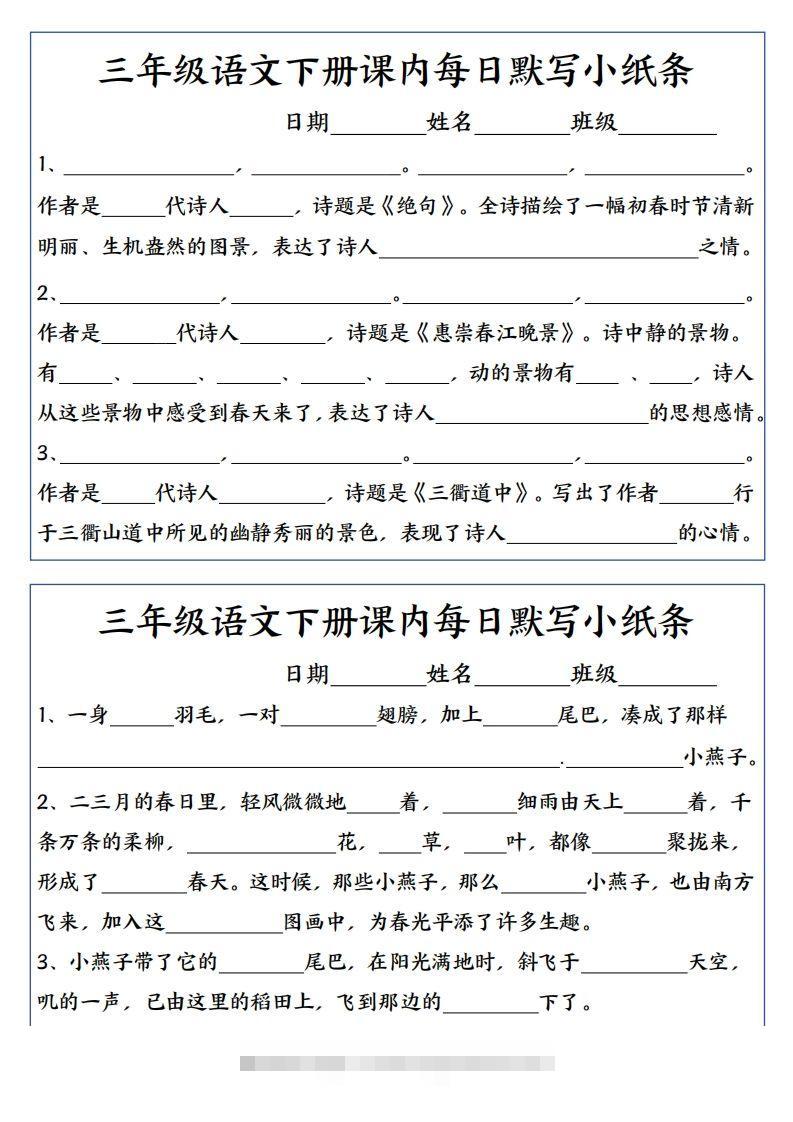 三年级语文下册课内每日默写小纸条
日期________姓名________班级________
1、________________，______________。______________，_______________。
作者是______代诗人______，诗题是《绝句》。全诗描绘了一幅初春时节清新
明丽、生机盎然的图景，表达了诗人______________________________之情。
2、_______________，_______________。________________，_______________。
作者是_______代诗人________，诗题是《惠崇春江晚景》。诗中静的景物。
有_____、______、______、______、______，动的景物有____ 、____，诗人
从这些景物中感受到春天来了，表达了诗人____________________的思想感情。
3、_______________，________________。_______________，_______________。
作者是_____代诗人__________，诗题是《三衢道中》。写出了作者_______行
于三衢山道中所见的幽静秀丽的景色，表现了诗人________________的心情。
三年级语文下册课内每日默写小纸条
日期________姓名________班级________
1、一身______羽毛，一对_________翅膀，加上_______尾巴，凑成了那样
_________________________________________________.___________小燕子。
2、二三月的春日里，轻风微微地_____着，_______细雨由天上______着，千
条万条的柔柳，______________花，____草，____叶，都像_______聚拢来，
形成了________春天。这时候，那些小燕子，那么________小燕子，也由南方
飞来，加入这___________图画中，为春光平添了许多生趣。
3、小燕子带了它的________尾巴，在阳光满地时，斜飞于__________天空，
叽的一声，已由这里的稻田上，飞到那边的_________下了。